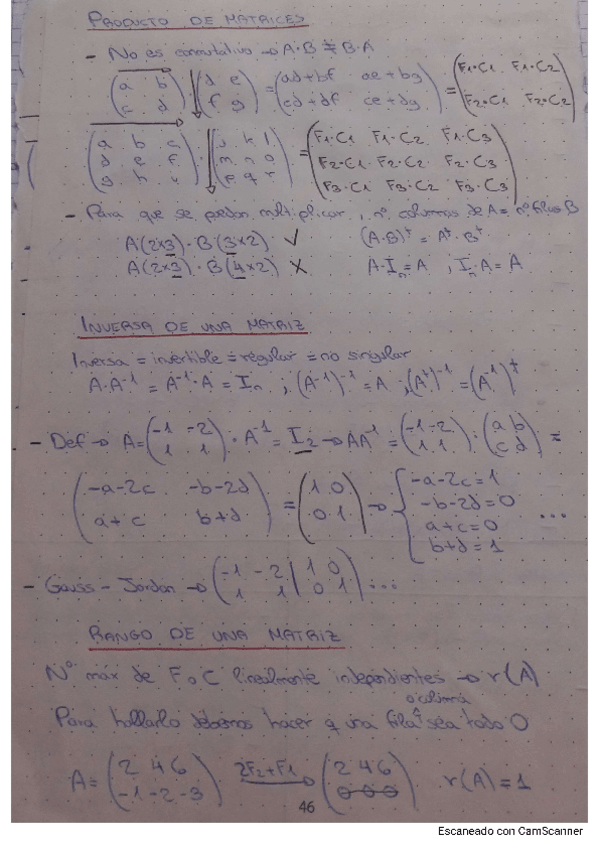 PRODUCTO DE MATRICES
- No es conmutativo → A·B ≠ B·A
(a b / c d) · (d e / f g) = (ad+bf ae+bg / cd+df ce+dg) = (F1·C1 F1·C2 / F2·C1 F2·C2)
(a b c / d e f / g h i) · (j k l / m n o / p q r) = (F1·C1 F1·C2 F1·C3 / F2·C1 F2·C2 F2·C3 / F3·C1 F3·C2 F3·C3)
- Para que se puedan multiplicar, nº columnas de A = nº filas B
A(2x3) · B(3x2) ✓ (A·B)ᵗ = Aᵗ·Bᵗ
A(2x3) · B(4x2) ✗ A·Iₙ = A ; Iₙ·A = A
INVERSA DE UNA MATRIZ
Inversa = invertible = regular = no singular
A·A⁻¹ = A⁻¹·A = Iₙ ; (A⁻¹)⁻¹ = A ; (Aᵗ)⁻¹ = (A⁻¹)ᵗ
- Def → A = (-1 -2 / 1 1) · A⁻¹ = I₂ → AA⁻¹ = (-1 -2 / 1 1) · (a b / c d) =
(-a-2c -b-2d / a+c b+d) = (1 0 / 0 1) → { -a-2c=1 / -b-2d=0 / a+c=0 / b+d=1 ...
- Gauss-Jordan → (-1 -2 | 1 0 / 1 1 | 0 1) ...
RANGO DE UNA MATRIZ
Nº máx de F o C linealmente independientes → r(A)
o columna
Para hallarlo debemos hacer q una fila sea todo 0
A = (2 4 6 / -1 -2 -3) 2F2+F1 → (2 4 6 / 0 0 0) r(A)=1
46
Escaneado con CamScanner